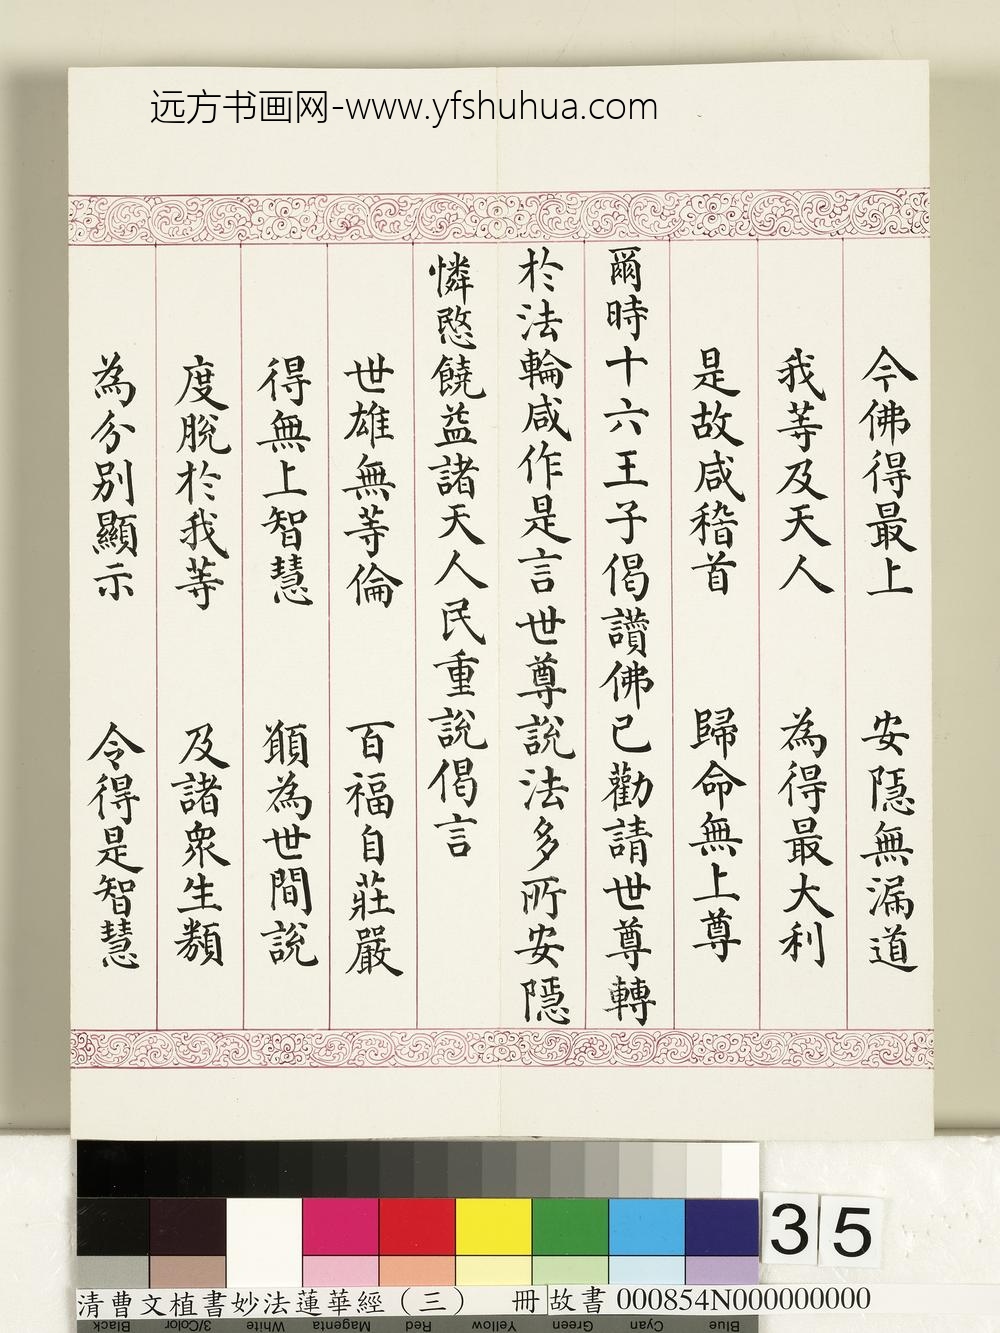 远方书画网-www.yfshuhua.com
今佛得最上 安隱無漏道
我等及天人 為得最大利
是故咸稽首 歸命無上尊
爾時十六王子偈讚佛已勸請世尊轉
於法輪咸作是言世尊說法多所安隱
憐愍饒益諸天人民重說偈言
世雄無等倫 百福自莊嚴
得無上智慧 願為世間說
度脫於我等 及諸眾生類
為分別顯示 令得是智慧
35
清曹文植書妙法蓮華經（三） 冊 故書 000854N000000000
Black 3/Color White Magenta Red Yellow Green Cyan Blue